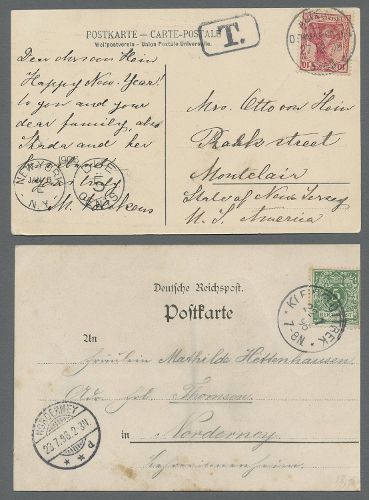 POSTKARTE – CARTE-POSTALE
Weltpostverein – Union Postale Universelle.
T.
Dear Mrs von Hein
Happy New-Year!
to you and your
dear family, also
and her
husband
Yours truly
M.
NEW YORK
JAN 6
1906
N.Y.
10
10
Mrs. Otto von Hein
Park street
Montclair
State of New Jersey
U. S. America
Deutsche Reichspost.
Postkarte
An
Fräulein Mathilde Hottenhausen
Adr. Frl. Thomsen
in Norderney
Lehrerinnenheim
NORDERNEY
23.7.96.2-3N.
* P *
7-8N